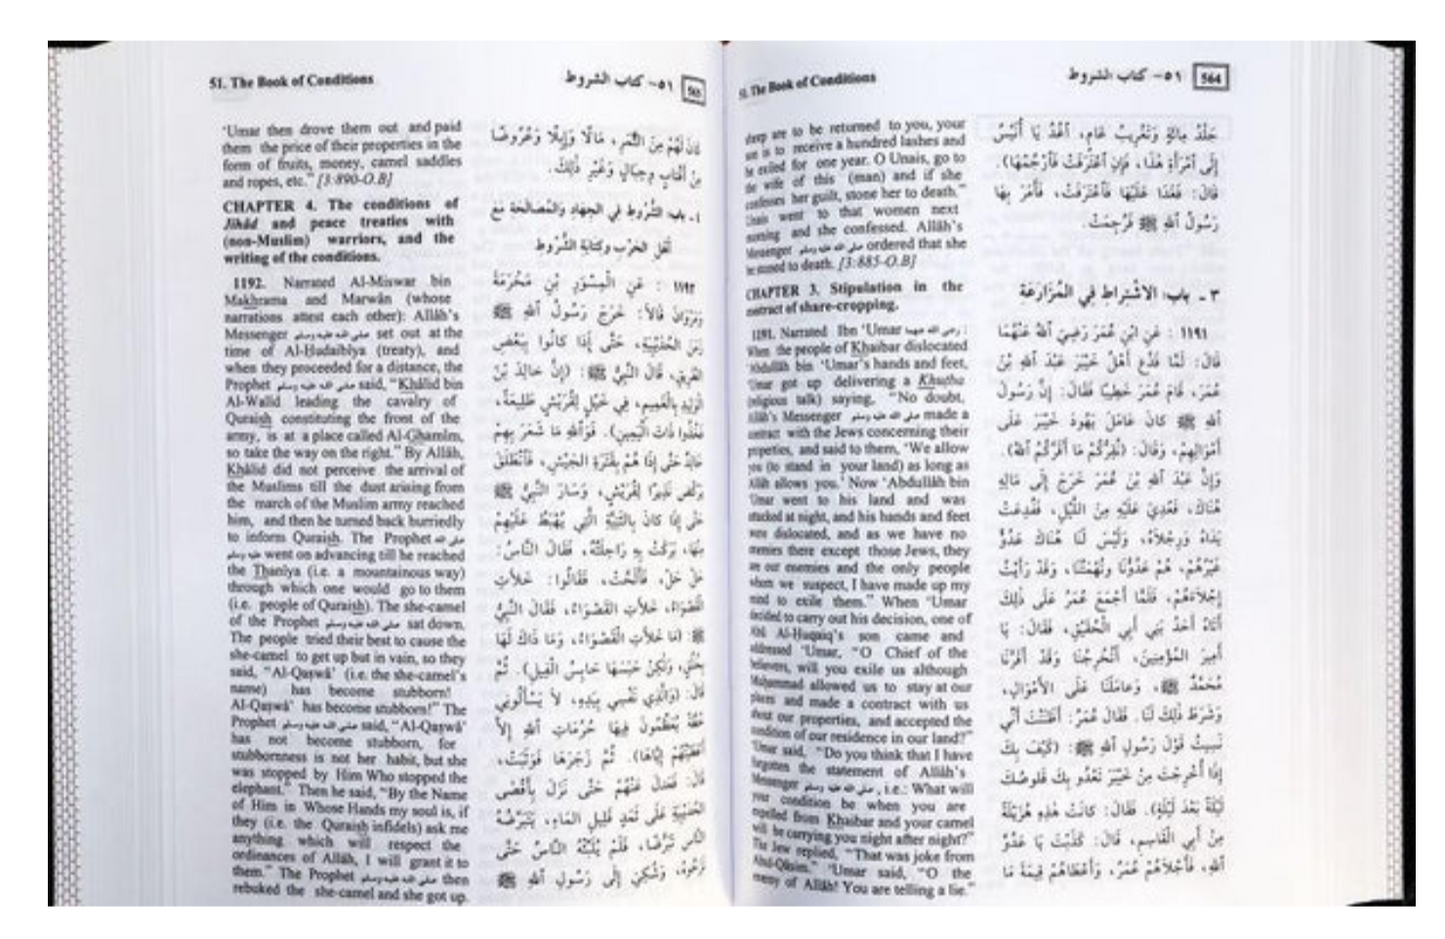 51. The Book of Conditions
٥١- كتاب الشروط
564
sheep are to be returned to you, your
is to receive a hundred lashes and
be exiled for one year. O Unais, go to
the wife of this (man) and if she
confesses her guilt, stone her to death.”
Unais went to that women next
morning and she confessed. Allâh's
Messenger صلى الله عليه وسلم ordered that she
be stoned to death. [3:885-O.B]
CHAPTER 3. Stipulation in the
contract of share-cropping.
1191. Narrated Ibn ‘Umar رضي الله عنهما :
When the people of Khaibar dislocated
‘Abdullâh bin ‘Umar's hands and feet,
‘Umar got up delivering a Khutba
(religious talk) saying, “No doubt,
Allâh's Messenger صلى الله عليه وسلم made a
contract with the Jews concerning their
properties, and said to them, ‘We allow
you (to stand in your land) as long as
Allâh allows you.’ Now ‘Abdullâh bin
‘Umar went to his land and was
attacked at night, and his hands and feet
were dislocated, and as we have no
enemies there except those Jews, they
are our enemies and the only people
whom we suspect, I have made up my
mind to exile them.” When ‘Umar
decided to carry out his decision, one of
Abû Al-Huqaiq's son came and
addressed ‘Umar, “O Chief of the
believers, will you exile us although
Muhammad allowed us to stay at our
places and made a contract with us
about our properties, and accepted the
condition of our residence in our land?”
‘Umar said, “Do you think that I have
forgotten the statement of Allâh's
Messenger صلى الله عليه وسلم , i.e.: What will
your condition be when you are
expelled from Khaibar and your camel
will be carrying you night after night?”
The Jew replied, “That was joke from
Abul-Qâsim.” ‘Umar said, “O the
enemy of Allâh! You are telling a lie.”
جَلْدُ مِائَةٍ وَتَغْرِيبُ عَامٍ، اغْدُ يَا أُنَيْسُ
إِلَى امْرَأَةِ هَذَا، فَإِنِ اعْتَرَفَتْ فَارْجُمْهَا).
قَالَ: فَغَدَا عَلَيْهَا فَاعْتَرَفَتْ، فَأَمَرَ بِهَا
رَسُولُ اللهِ ﷺ فَرُجِمَتْ.
٣ - باب: الاشْتِراط في المُزَارَعَة
١١٩١ : عَنِ ابْنِ عُمَرَ رَضِيَ اللهُ عَنْهُمَا
قَالَ: لَمَّا فَدَعَ أَهْلُ خَيْبَرَ عَبْدَ اللهِ بْنَ
عُمَرَ، قَامَ عُمَرُ خَطِيبًا فَقَالَ: إِنَّ رَسُولَ
اللهِ ﷺ كَانَ عَامَلَ يَهُودَ خَيْبَرَ عَلَى
أَمْوَالِهِمْ، وَقَالَ: (نُقِرُّكُمْ مَا أَقَرَّكُمُ اللهُ).
وَإِنَّ عَبْدَ اللهِ بْنَ عُمَرَ خَرَجَ إِلَى مَالِهِ
هُنَاكَ، فَعُدِيَ عَلَيْهِ مِنَ اللَّيْلِ، فَفُدِعَتْ
يَدَاهُ وَرِجْلاَهُ، وَلَيْسَ لَنَا هُنَاكَ عَدُوٌّ
غَيْرُهُمْ، هُمْ عَدُوُّنَا وَتُهْمَتُنَا، وَقَدْ رَأَيْتُ
إِجْلاَءَهُمْ، فَلَمَّا أَجْمَعَ عُمَرُ عَلَى ذَلِكَ
أَتَاهُ أَحَدُ بَنِي أَبِي الْحُقَيْقِ، فَقَالَ: يَا
أَمِيرَ المُؤْمِنِينَ، أَتُخْرِجُنَا وَقَدْ أَقَرَّنَا
مُحَمَّدٌ ﷺ، وَعامَلَنَا عَلَى الأَمْوَالِ،
وَشَرَطَ ذَلِكَ لَنَا. فَقَالَ عُمَرُ: أَظَنَنْتَ أَنِّي
نَسِيتُ قَوْلَ رَسُولِ اللهِ ﷺ: (كَيْفَ بِكَ
إِذَا أُخْرِجْتَ مِنْ خَيْبَرَ تَعْدُو بِكَ قَلُوصُكَ
لَيْلَةً بَعْدَ لَيْلَةٍ). فَقَالَ: كَانَتْ هَذِهِ هُزَيْلَةً
مِنْ أَبِي الْقَاسِمِ، قَالَ: كَذَبْتَ يَا عَدُوَّ
اللهِ، فَأَجْلاَهُمْ عُمَرُ، وَأَعْطَاهُمْ قِيمَةَ مَا
51. The Book of Conditions
٥١- كتاب الشروط
565
‘Umar then drove them out and paid
them the price of their properties in the
form of fruits, money, camel saddles
and ropes, etc.” [3:890-O.B]
CHAPTER 4. The conditions of
Jihâd and peace treaties with
(non-Muslim) warriors, and the
writing of the conditions.
1192. Narrated Al-Miswar bin
Makhrama and Marwân (whose
narrations attest each other): Allâh's
Messenger صلى الله عليه وسلم set out at the
time of Al-Hudaibîya (treaty), and
when they proceeded for a distance, the
Prophet صلى الله عليه وسلم said, “Khâlid bin
Al-Walîd leading the cavalry of
Quraish constituting the front of the
army, is at a place called Al-Ghamîm,
so take the way on the right.” By Allâh,
Khâlid did not perceive the arrival of
the Muslims till the dust arising from
the march of the Muslim army reached
him, and then he turned back hurriedly
to inform Quraish. The Prophet صلى الله
عليه وسلم went on advancing till he reached
the Thanîya (i.e. a mountainous way)
through which one would go to them
(i.e. people of Quraish). The she-camel
of the Prophet صلى الله عليه وسلم sat down.
The people tried their best to cause the
she-camel to get up but in vain, so they
said, “Al-Qaswâ’ (i.e. the she-camel's
name) has become stubborn!
Al-Qaswâ’ has become stubborn!” The
Prophet صلى الله عليه وسلم said, “Al-Qaswâ’
has not become stubborn, for
stubbornness is not her habit, but she
was stopped by Him Who stopped the
elephant.” Then he said, “By the Name
of Him in Whose Hands my soul is, if
they (i.e. the Quraish infidels) ask me
anything which will respect the
ordinances of Allâh, I will grant it to
them.” The Prophet صلى الله عليه وسلم then
rebuked the she-camel and she got up.
كَانَ لَهُمْ مِنَ الثَّمَرِ، مَالًا وَإِبِلًا وَعُرُوضًا
مِنْ أَقْتَابٍ وَحِبَالٍ وَغَيْرِ ذَلِكَ.
٤ - باب: الشُّرُوط في الجِهَادِ وَالمُصَالَحَةِ مَعَ
أَهْلِ الحَرْبِ وكتابَةِ الشُّرُوط
١١٩٢ : عَنِ الْمِسْوَرِ بْنِ مَخْرَمَةَ
وَمَرْوَانَ قَالاَ: خَرَجَ رَسُولُ اللهِ ﷺ
زَمَنَ الحُدَيْبِيَةِ، حَتَّى إِذَا كَانُوا بِبَعْضِ
الطَّرِيقِ، قَالَ النَّبِيُّ ﷺ: (إِنَّ خَالِدَ بْنَ
الْوَلِيدِ بِالْغَمِيمِ، فِي خَيْلٍ لِقُرَيْشٍ طَلِيعَةً،
فَخُذُوا ذَاتَ الْيَمِينِ). فَوَاللهِ مَا شَعَرَ بِهِمْ
خَالِدٌ حَتَّى إِذَا هُمْ بِقَتَرَةِ الجَيْشِ، فَانْطَلَقَ
يَرْكُضُ نَذِيرًا لِقُرَيْشٍ، وَسَارَ النَّبِيُّ ﷺ
حَتَّى إِذَا كَانَ بِالثَّنِيَّةِ الَّتِي يُهْبَطُ عَلَيْهِمْ
مِنْهَا، بَرَكَتْ بِهِ رَاحِلَتُهُ، فَقَالَ النَّاسُ:
حَلْ حَلْ، فَأَلَحَّتْ، فَقَالُوا: خَلأَتِ
الْقَصْوَاءُ، خَلأَتِ القَصْوَاءُ، فَقَالَ النَّبِيُّ
ﷺ: (مَا خَلأَتِ الْقَصْوَاءُ، وَمَا ذَاكَ لَهَا
بِخُلُقٍ، وَلَكِنْ حَبَسَهَا حَابِسُ الْفِيلِ). ثُمَّ
قَالَ: (وَالَّذِي نَفْسِي بِيَدِهِ، لاَ يَسْأَلُونِي
خُطَّةً يُعَظِّمُونَ فِيهَا حُرُمَاتِ اللهِ إِلاَّ
أَعْطَيْتُهُمْ إِيَّاهَا). ثُمَّ زَجَرَهَا فَوَثَبَتْ،
قَالَ: فَعَدَلَ عَنْهُمْ حَتَّى نَزَلَ بِأَقْصَى
الحُدَيْبِيَةِ عَلَى ثَمَدٍ قَلِيلِ المَاءِ، يَتَبَرَّضُهُ
النَّاسُ تَبَرُّضًا، فَلَمْ يُلَبِّثْهُ النَّاسُ حَتَّى
نَزَحُوهُ، وَشُكِيَ إِلَى رَسُولِ اللهِ ﷺ